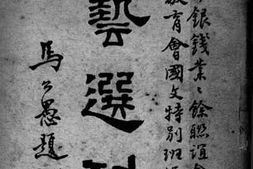 銀錢業業餘聯誼會
教育會國文特別班
藝選
馬公愚題